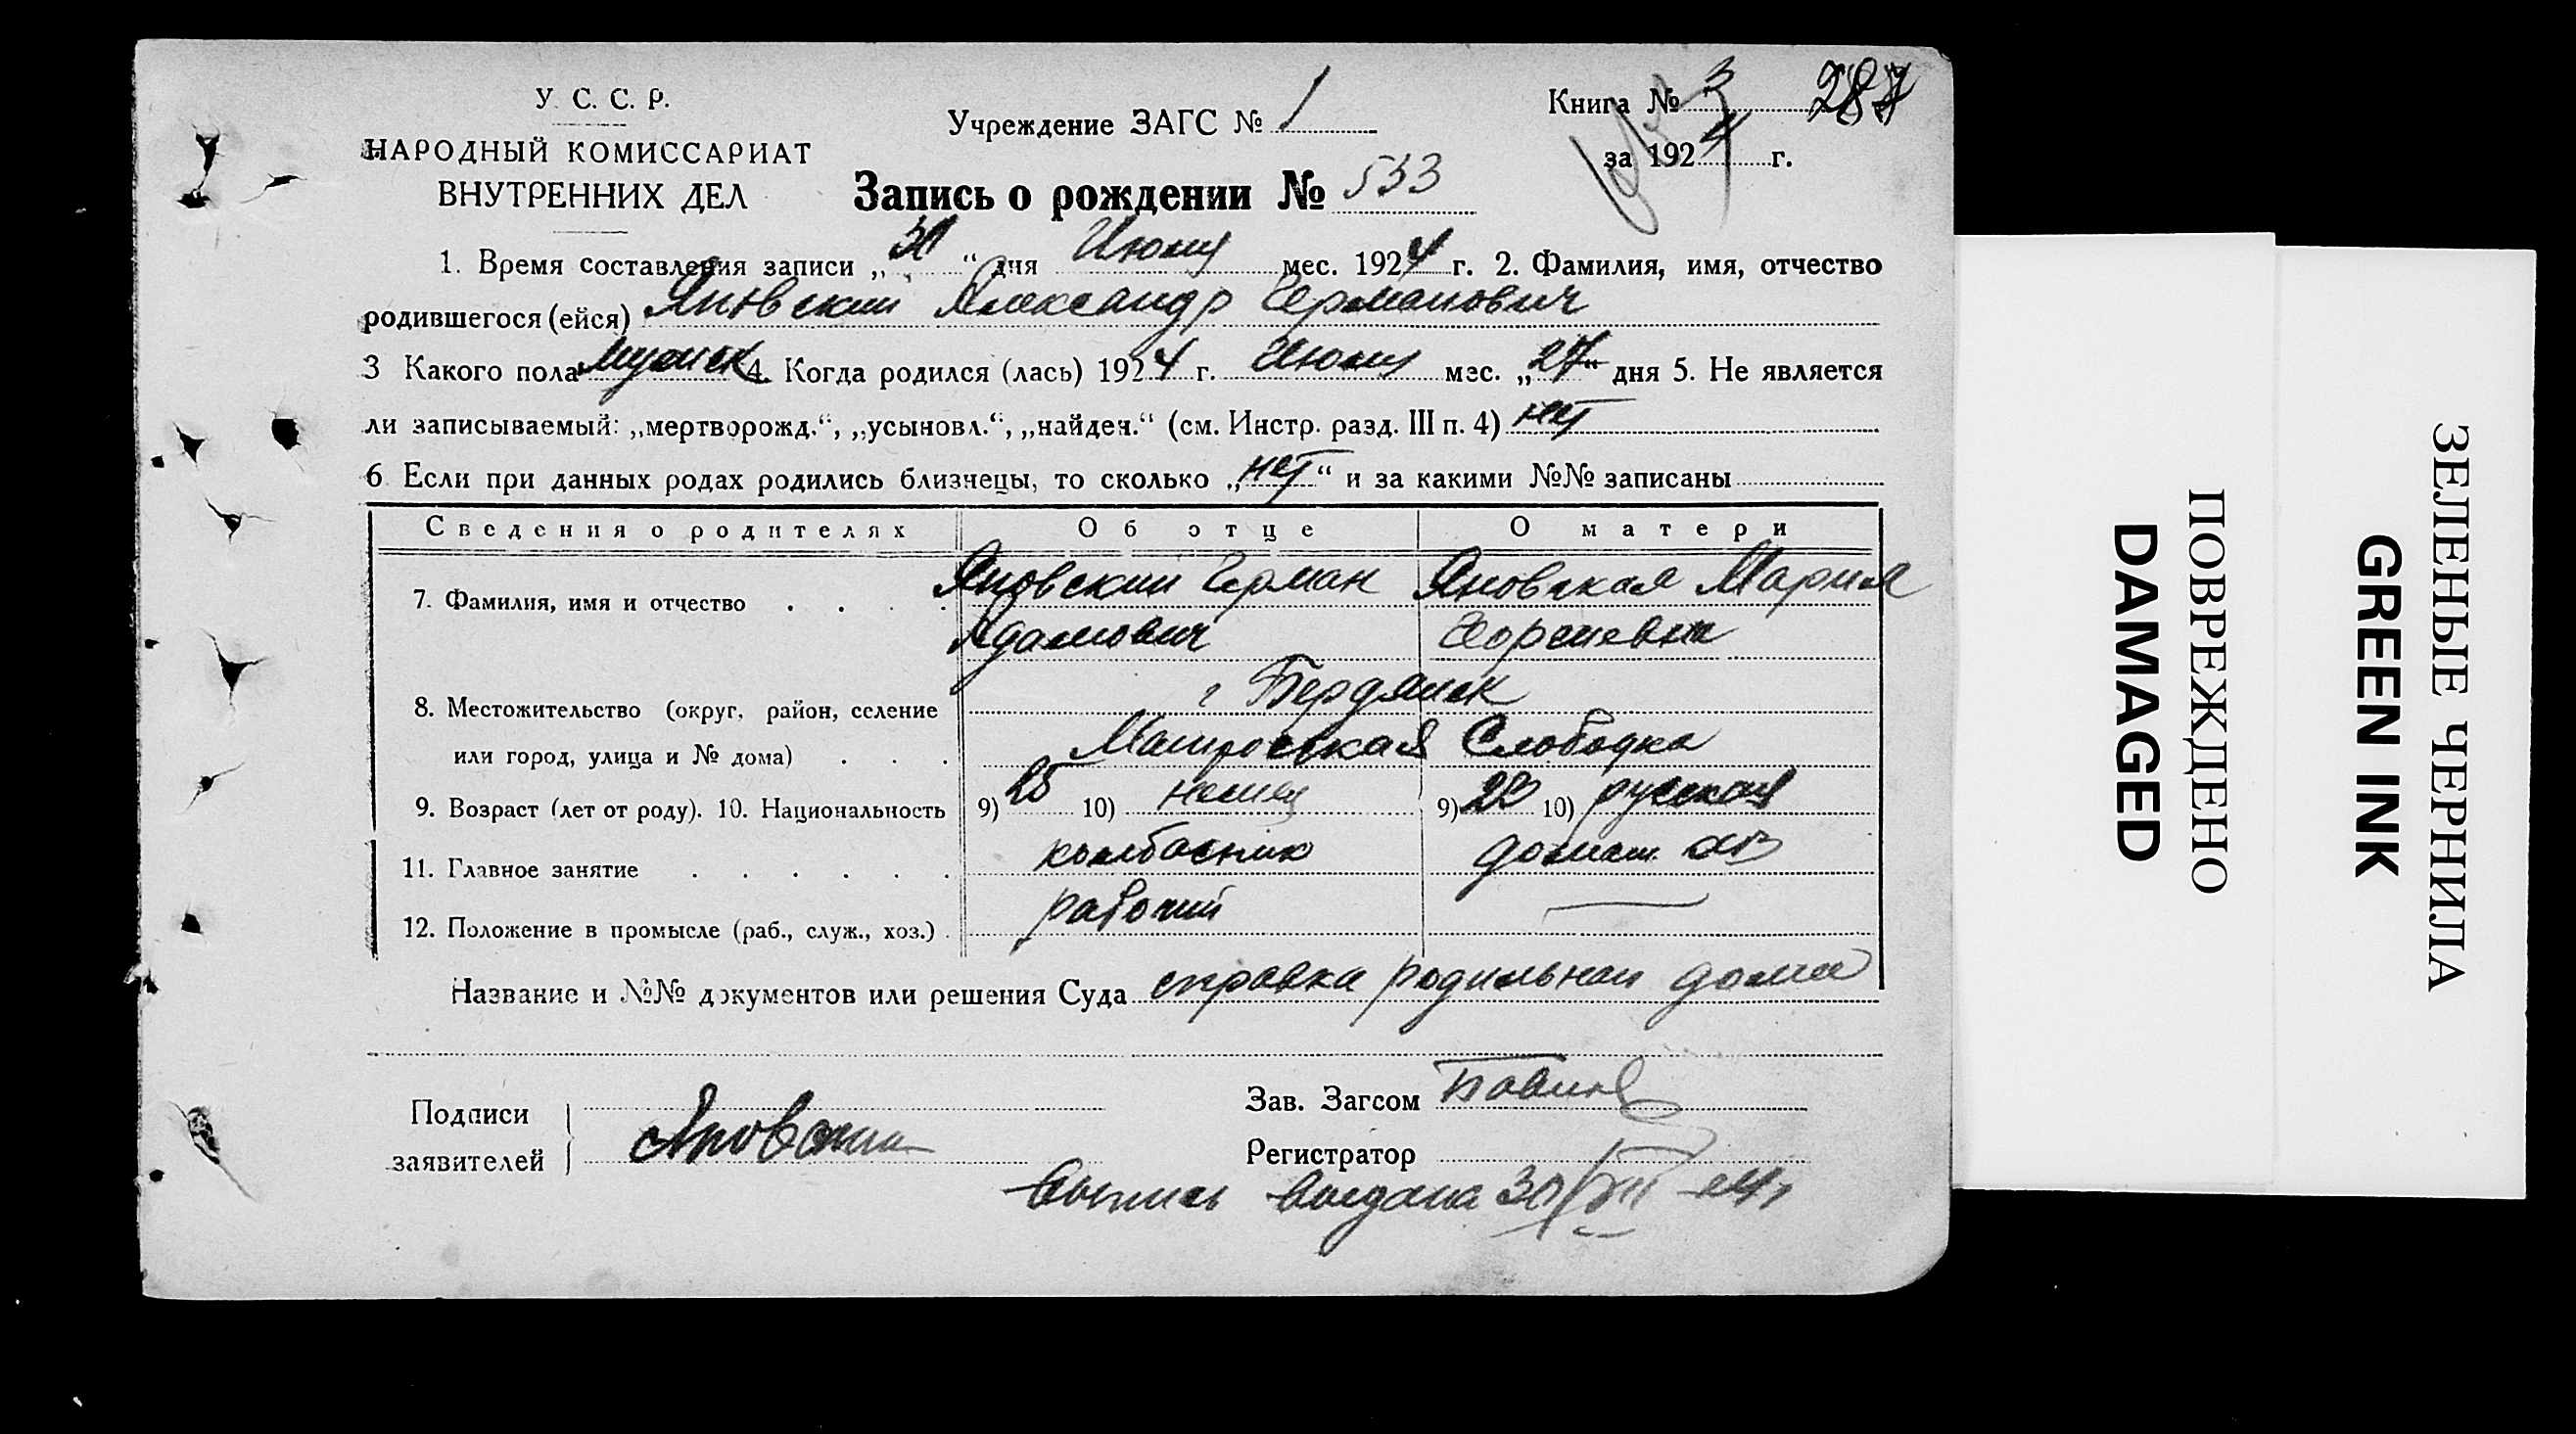 У. С. С. Р.
НАРОДНЫЙ КОМИССАРИАТ
ВНУТРЕННИХ ДЕЛ
Учреждение ЗАГС № 1
Книга № 3
за 1924 г.
Запись о рождении № 533
1. Время составления записи „30“ дня Июля мес. 1924 г. 2. Фамилия, имя, отчество
родившегося (ейся) Яновский Александр Германович
3 Какого пола мужск 4. Когда родился (лась) 1924 г. Июля мес. „27“ дня 5. Не является
ли записываемый: „мертворожд.“, „усыновл.“, „найден.“ (см. Инстр. разд. III п. 4) нет
6 Если при данных родах родились близнецы, то сколько „нет“ и за какими №№ записаны
Сведения о родителях Об отце О матери
7. Фамилия, имя и отчество . . . . Яновский Герман Яновская Мария
Адамович Георгиевна
8. Местожительство (округ, район, селение г Бердянск
или город, улица и № дома) . . . Матросская Слободка
9. Возраст (лет от роду). 10. Национальность 9) 25 10) немец 9) 23 10) русская
11. Главное занятие . . . . . . колбасник домаш. хз
12. Положение в промысле (раб., служ., хоз.) . рабочий —
Название и №№ документов или решения Суда справка родильном дома
Подписи
заявителей
Яновский
Зав. Загсом
Регистратор
Выпись выдана 30/VII 24 г
ПОВРЕЖДЕНО
DAMAGED
ЗЕЛЕНЫЕ ЧЕРНИЛА
GREEN INK